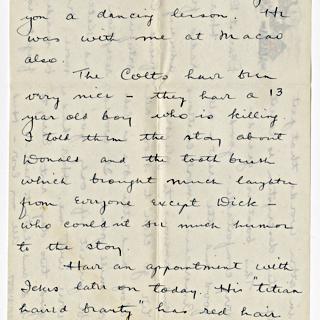 you a dancing lesson. He
was with me at Macao
also.
The Colts have been
very nice – they have a 13
year old boy who is killing.
I told them the story about
Donald and the tooth brush
which brought much laughter
from everyone except Dick –
who couldn't see much humor
to the story.
Have an appointment with
Ickis later on today. His "titian
haired beauty" has red hair